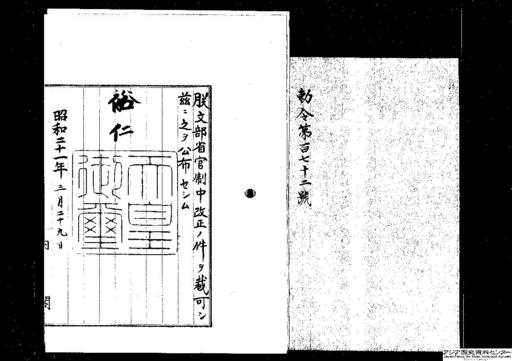 勅令第百七十二號
朕文部省官制中改正ノ件ヲ裁可シ
茲ニ之ヲ公布セシム
裕仁
天皇御璽
昭和二十一年三月二十九日
内閣
アジア歴史資料センター